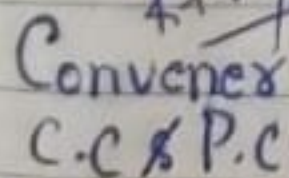 Convener
C.C & P.C